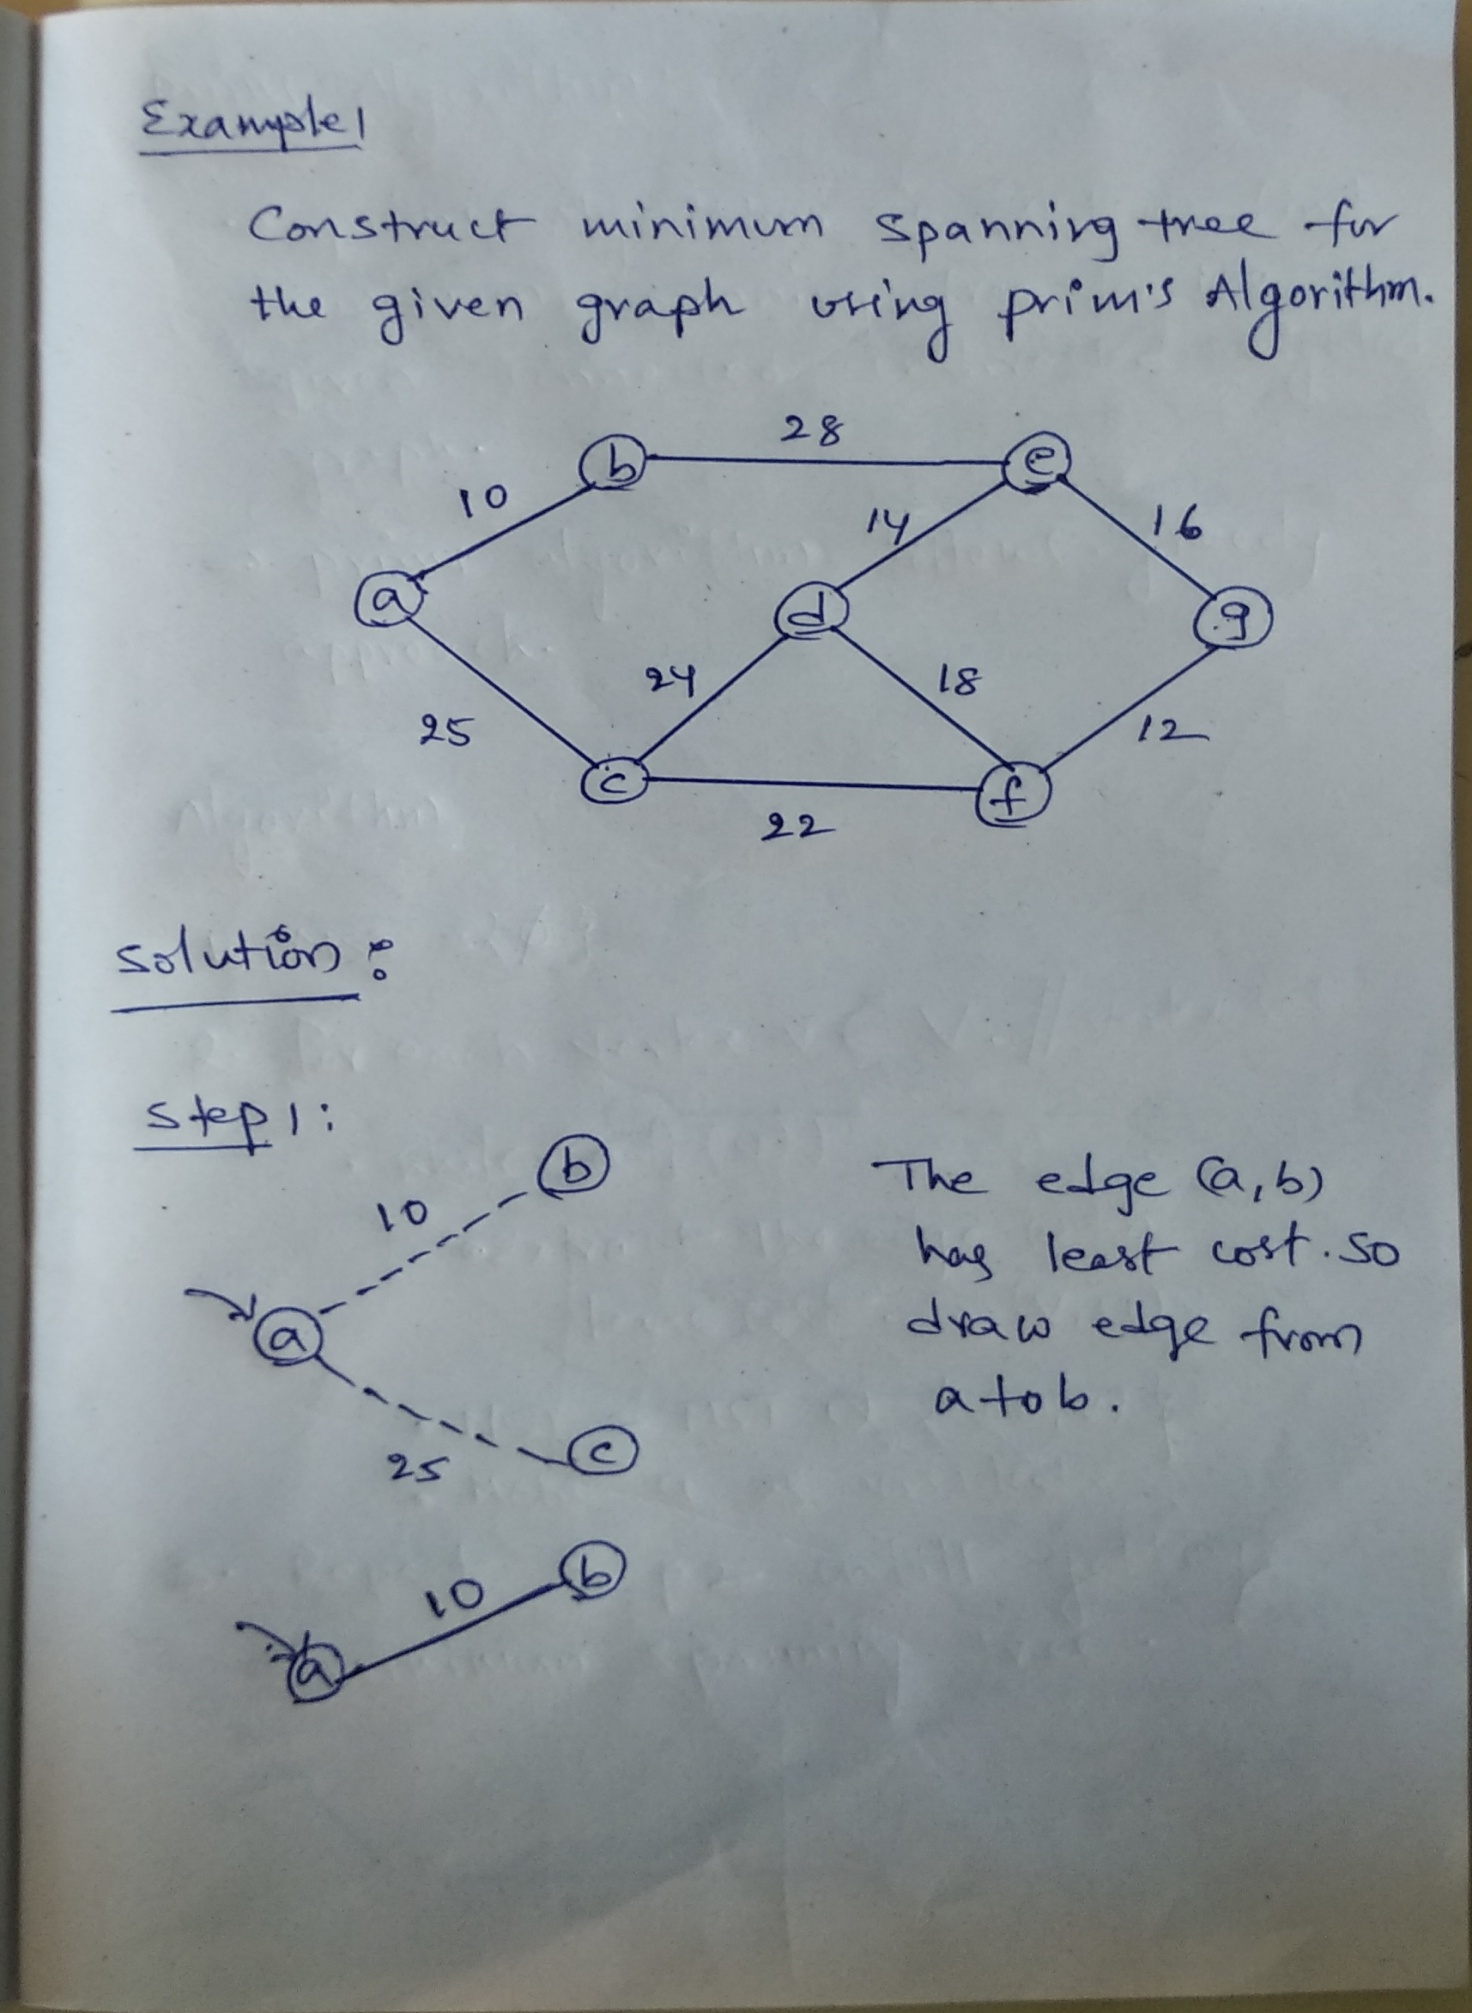 Example 1
Construct minimum spanning tree for
the given graph using prim's Algorithm.
28
b
e
10
14
16
a
d
g
24
18
25
12
c
f
22
Solution:
Step 1:
b
The edge (a, b)
10
has least cost. So
a
draw edge from
a to b.
c
25
b
10
a